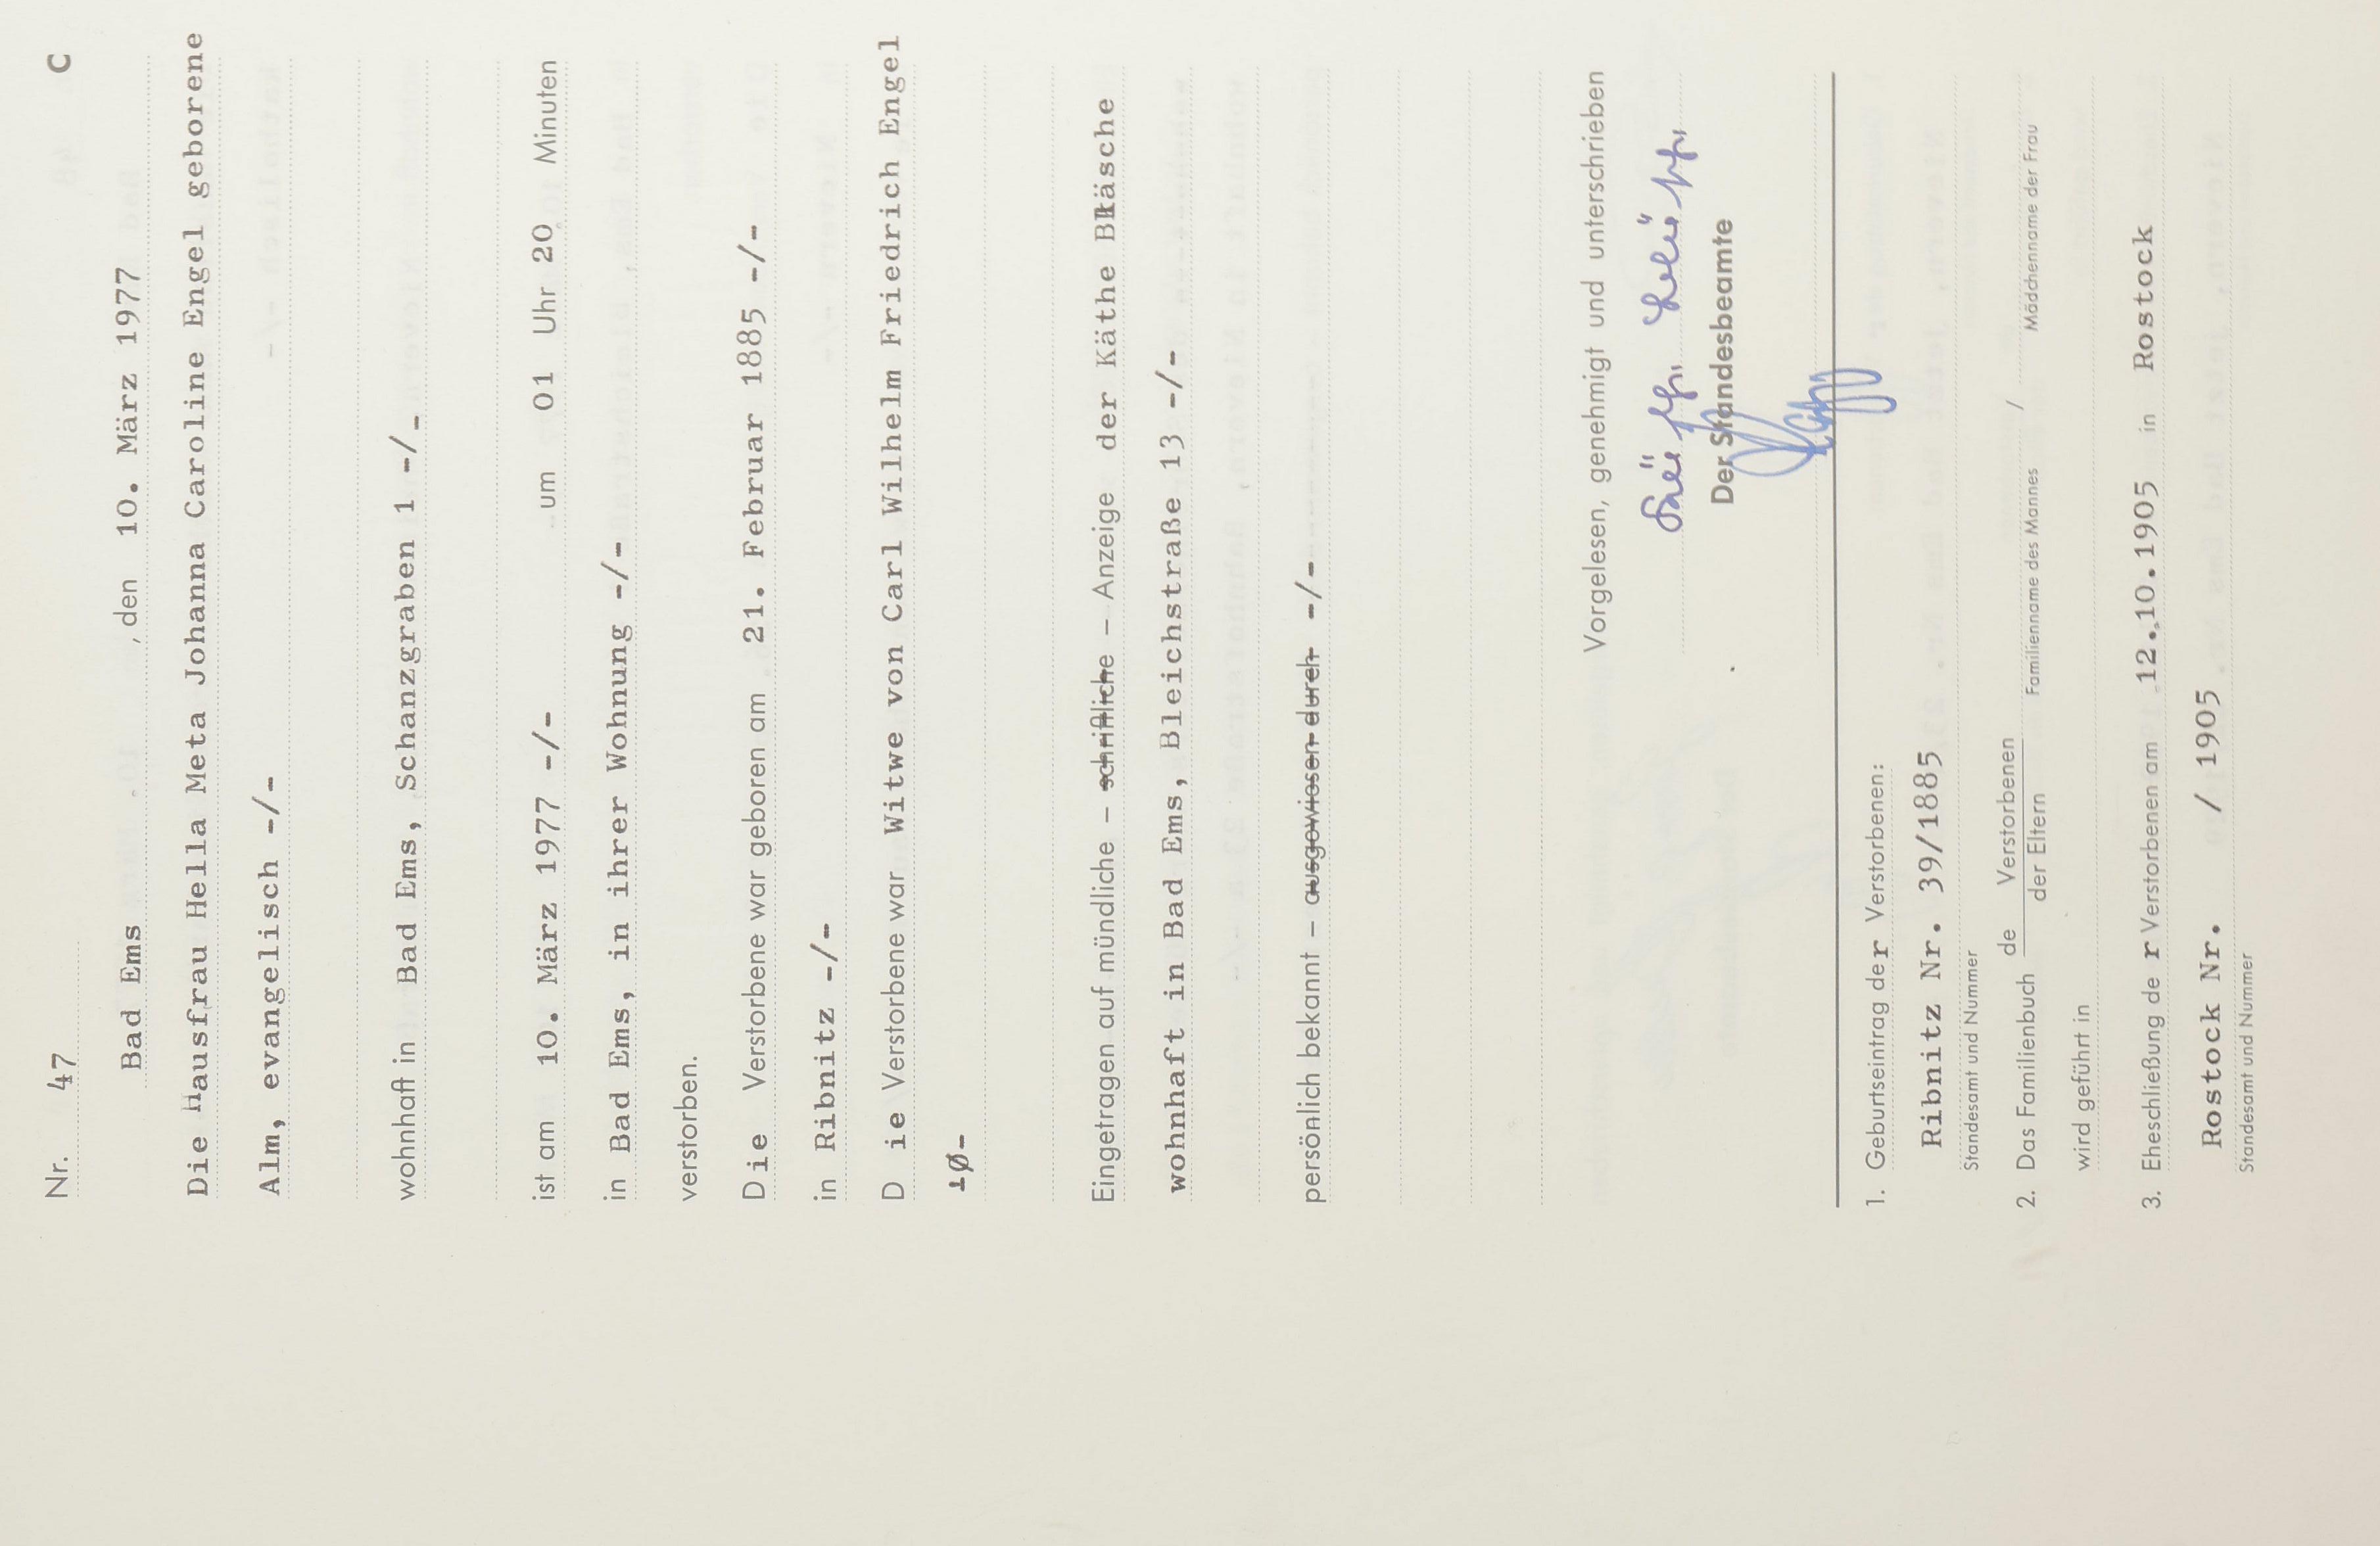 Nr. 47 C
Bad Ems , den 10. März 1977
Die Hausfrau Hella Meta Johanna Caroline Engel geborene
Alm, evangelisch -/-
wohnhaft in Bad Ems, Schanzgraben 1 -/-
ist am 10. März 1977 -/- um 01 Uhr 20 Minuten
in Bad Ems, in ihrer Wohnung -/-
verstorben.
Die Verstorbene war geboren am 21. Februar 1885 -/-
in Ribnitz -/-
Die Verstorbene war Witwe von Carl Wilhelm Friedrich Engel
-Ø-
Eingetragen auf mündliche – schriftliche – Anzeige der Käthe Bläsche
wohnhaft in Bad Ems, Bleichstraße 13 -/-
persönlich bekannt – ausgewiesen durch -/-
Vorgelesen, genehmigt und unterschrieben
Der Standesbeamte
1. Geburtseintrag der Verstorbenen:
Ribnitz Nr. 39/1885
Standesamt und Nummer
2. Das Familienbuch de Verstorbenen
der Eltern
Familienname des Mannes / Mädchenname der Frau
wird geführt in
3. Eheschließung der Verstorbenen am 12.10.1905 in Rostock
Rostock Nr. / 1905
Standesamt und Nummer